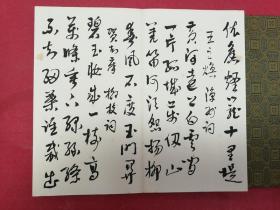 依舊煙籠十里堤
王之渙 涼州詞
黃河遠上白雲間
一片孤城萬仞山
羌笛何須怨楊柳
春風不度玉門關
賀知章 柳枝詞
碧玉妝成一樹高
萬條垂下綠絲絛
不知細葉誰裁出